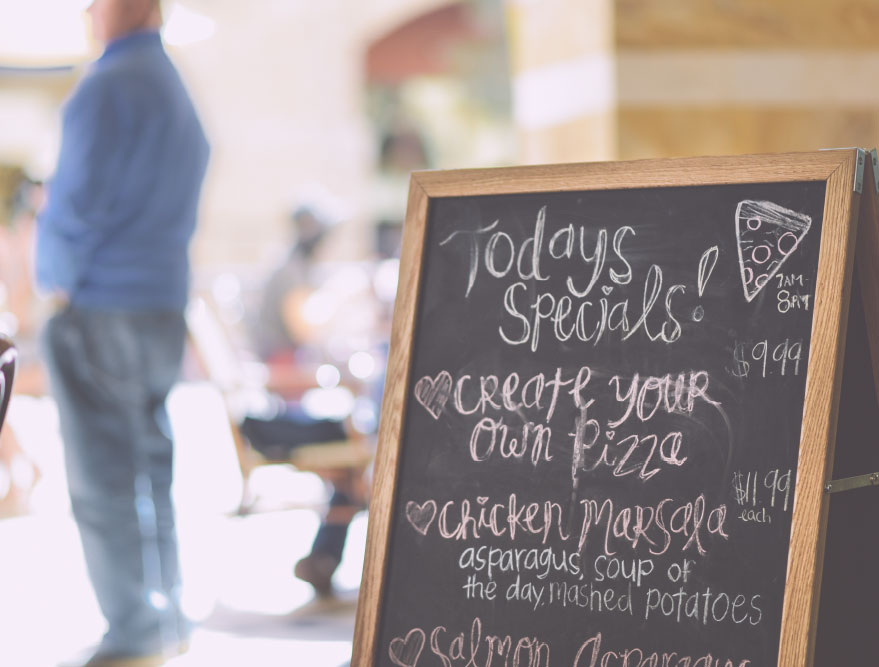 Todays
Specials!
7AM-
8PM
$9.99
Create your
own Pizza
$11.99
each
chicken Marsala
asparagus, soup of
the day, mashed potatoes
Salmon Asparagus